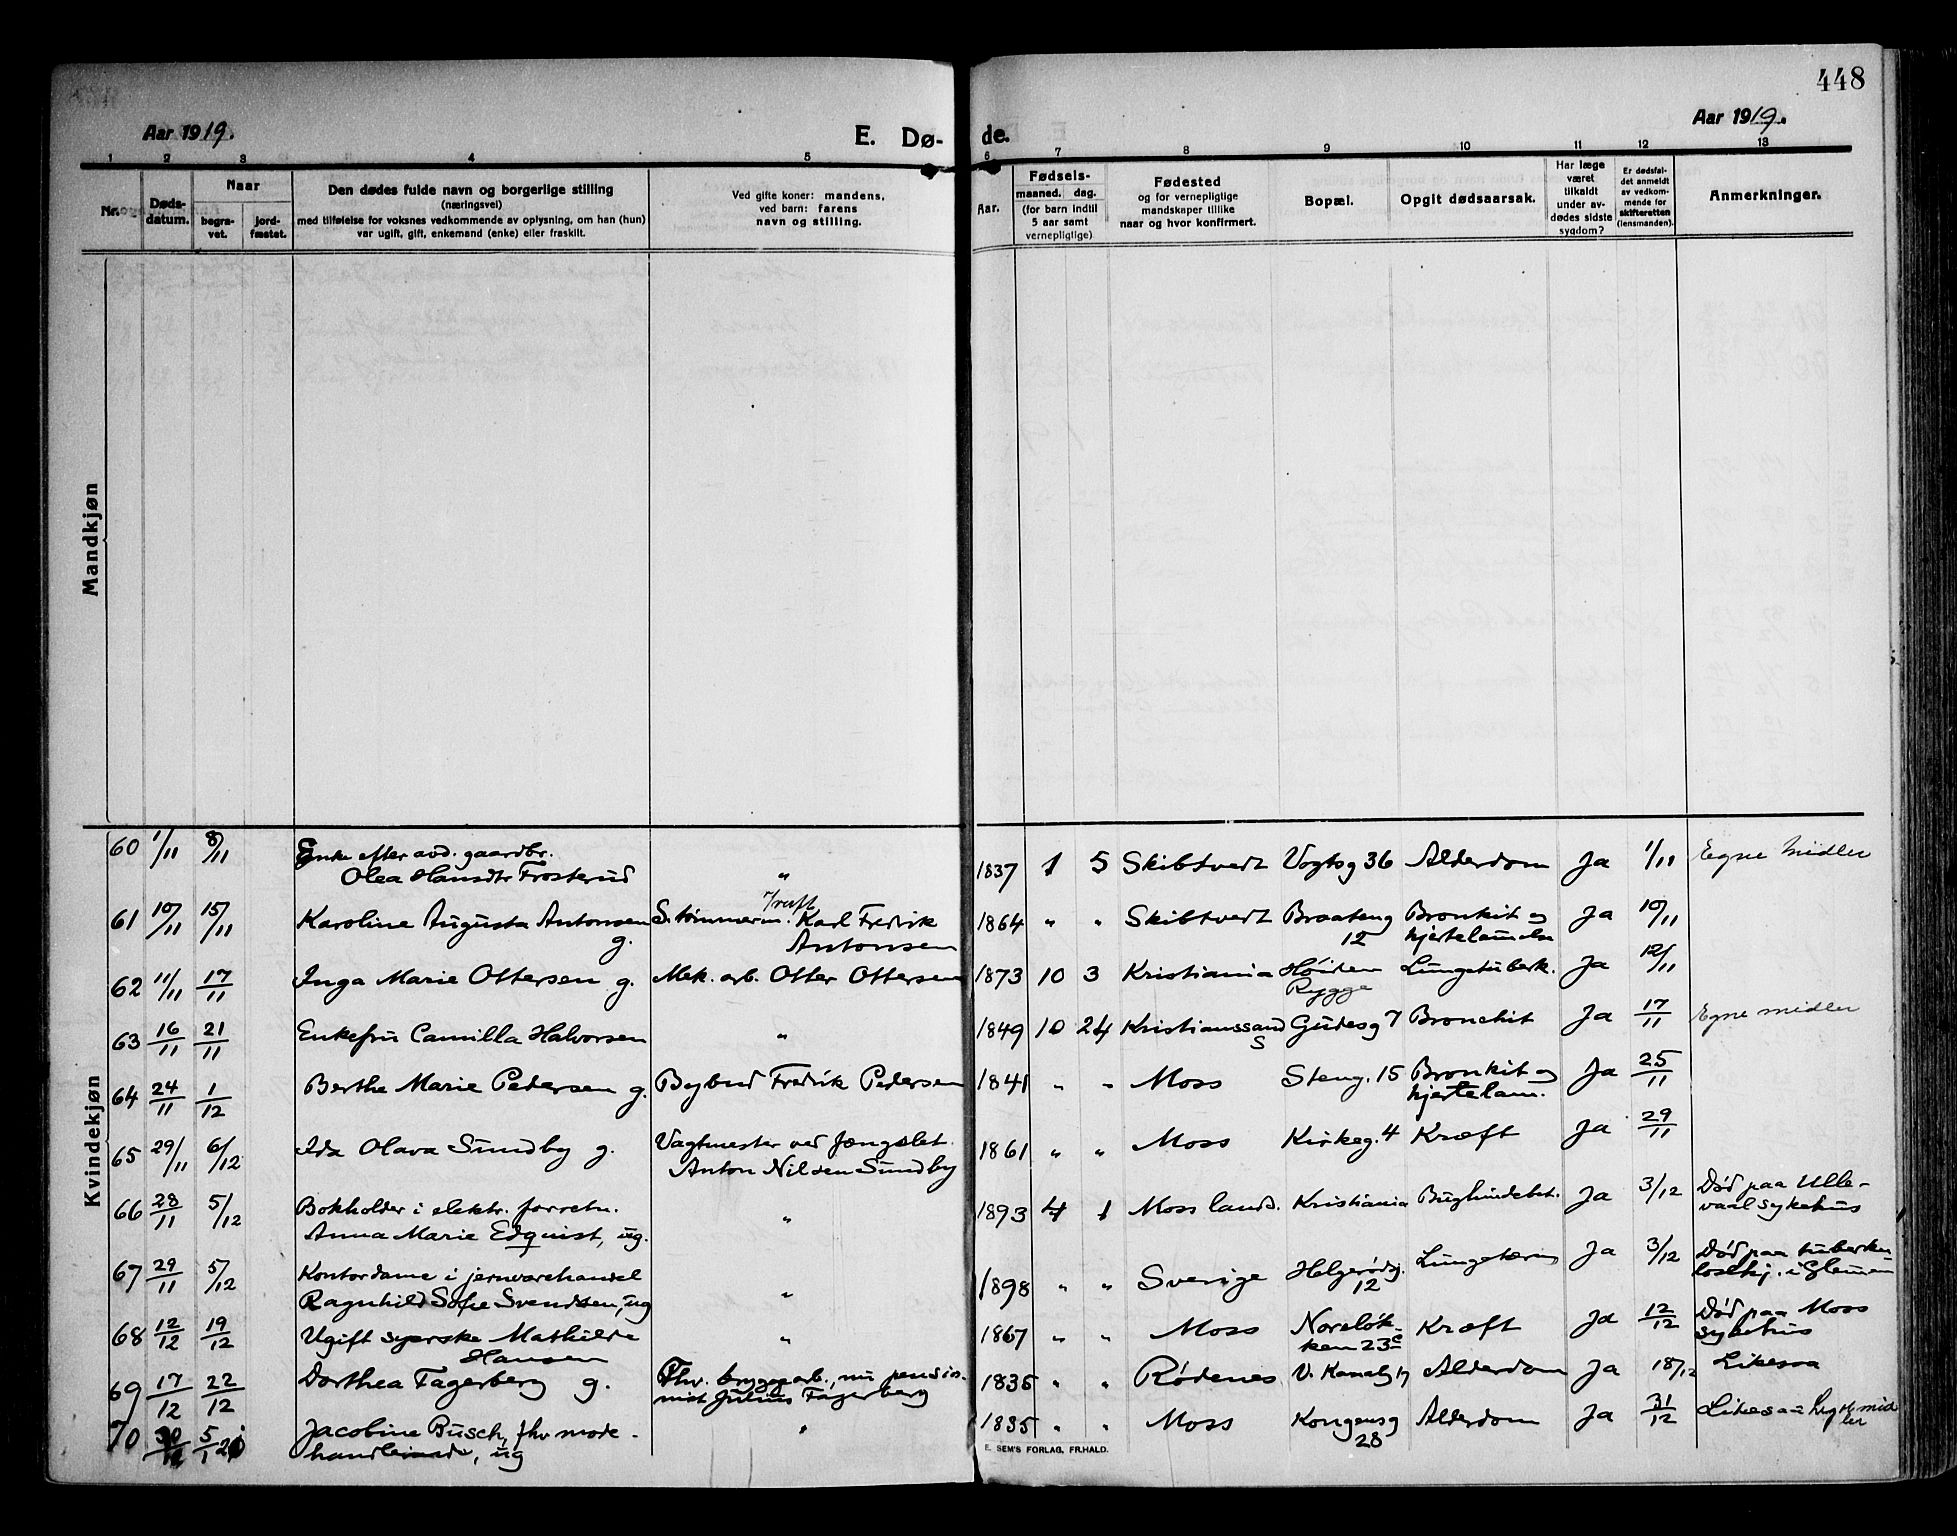 448
Aar 1919.
E. Dø- de.
Aar 1919.
1 2 3 4 5 6 7 8 9 10 11 12 13
Nr.
Døds-
datum.
Naar
begra-
vet.
jord-
fæstet.
Den dødes fulde navn og borgerlige stilling
(næringsvei)
med tilføielse for voksnes vedkommende av oplysning, om han (hun)
var ugift, gift, enkemand (enke) eller fraskilt.
Ved gifte koner: mandens,
ved barn: farens
navn og stilling.
Fødsels-
Aar.
maaned. dag.
(for barn indtil
5 aar samt
vernepligtige)
Fødested
og for vernepligtige
mandskaper tillike
naar og hvor konfirmert.
Bopæl.
Opgit dødsaarsak.
Har læge
været
tilkaldt
under av-
dødes sidste
sygdom?
Er dødsfal-
det anmeldt
av vedkom-
mende for
skifteretten
(lensmanden).
Anmerkninger.
Mandkjøn
Kvindekjøn
60 1/11 8/11 Enke efter avd. gaardbr.
Olea Hansdtr Frosterud " 1837 1 5 Skibtvedt Vogtsg 36 Alderdom Ja 1/11 Egne Midler
61 10/11 15/11 Karoline Augusta Antonsen g. S. tømmerm. Karl Fredrik
Antonsen 1864 " " Skibtvedt Braateng 12 Bronkit og
hjertelammelse Ja 10/11
62 11/11 17/11 Inga Marie Ottersen g. Mek. arb. Otter Ottersen 1873 10 3 Kristiania Høiden
Rygge Lungetuberk. Ja 12/11
63 16/11 21/11 Enkefru Camilla Halvorsen " 1849 10 24 Kristianssand
S Gudesg 7 Bronchit Ja 17/11 Egne midler
64 24/11 1/12 Berthe Marie Pedersen g. Bybud Fredrik Pedersen 1841 " " Moss Steng. 15 Bronkit og
hjertelam. Ja 25/11
65 29/11 6/12 Ida Olava Sundby g. Vagtmester ved fængslet
Anton Nilsen Sundby 1861 " " Moss Kirkeg. 4 Kræft Ja 29/11
66 28/11 5/12 Bokholder i elektr. forretn.
Anna Marie Edquist, ug. " 1893 4 1 Moss lands. Kristiania Bughindebet. Ja 3/12 Død paa Ulle-
vaal sykehus
67 29/11 5/12 Kontordame i jernvarehandel
Ragnhild Sofie Svendsen, ug " 1898 " " Sverige Helgerødg.
12 Lungetæring Ja 3/12 Død paa tuberku-
loschj. i Glemmen
68 12/12 19/12 Ugift syerske Mathilde
Hansen " 1867 " " Moss Noreløk-
ken 23c Kræft Ja 12/12 Død paa Moss
sykehus
69 17/12 22/12 Dorthea Fagerberg g. Fhv. bryggearb., nu pensio-
nist Julius Fagerberg 1835 " " Rødenes V. Kanalg 17 Alderdom Ja 18/12 Likesaa
70 30/12 5/1 20 Jacobine Busch, fhv mode-
handlerinde, ug " 1835 " " Moss Kongensg
28 Alderdom Ja 31/12 Likesaa
E. SEM'S FORLAG, FR.HALD.